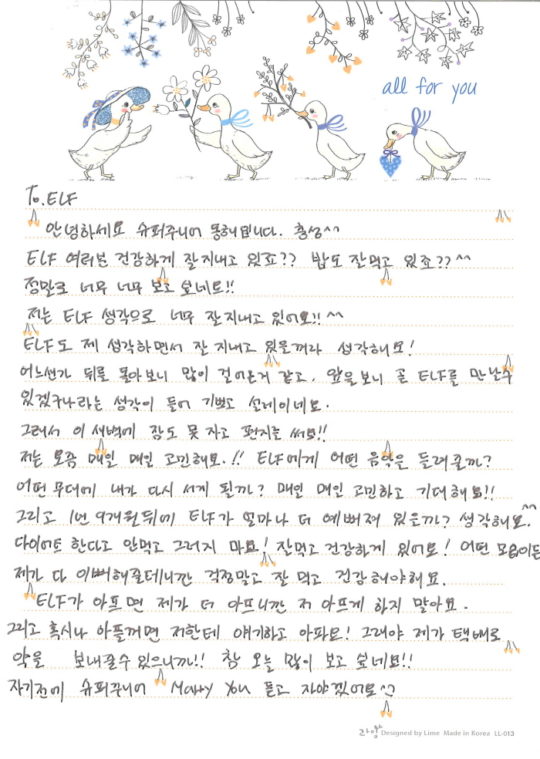 all for you
To. ELF
안녕하세요 슈퍼주니어 동해입니다. 충성^^
ELF 여러분 건강하게 잘지내고 있죠?? 밥도 잘먹고 있죠??^^
정말로 너무 너무 보고 싶네요!!
저는 ELF 생각으로 너무 잘지내고 있어요!! ^^
ELF도 제 생각하면서 잘 지내고 있을꺼라 생각해요!
어느센가 뒤를 돌아보니 많이 걸어온거 같고, 앞을보니 곧 ELF를 만날수
있겠구나라는 생각이 들어 기쁘고 설레이네요.
그래서 이 새벽에 잠도 못 자고 편지를 써요!!
저는 요즘 매일 매일 고민해요.!! ELF에게 어떤 음악을 들려줄까?
어떤 무대에 내가 다시 서게 될까? 매일 매일 고민하고 기대해요!!
그리고 1년 9개월뒤에 ELF가 얼마나 더 예뻐져 있을까? 생각해요.^^
다이어트 한다고 안먹고 그러지 마요! 잘먹고 건강하게 있어요! 어떤 모습이든
제가 다 이뻐해줄테니깐 걱정말고 잘 먹고 건강해야해요.
ELF가 아프면 제가 더 아프니깐 저 아프게 하지 말아요.
그리고 혹시나 아플꺼면 저한테 얘기하고 아파요! 그래야 제가 택배로
약을 보내줄수 있으니까!! 참 오늘 많이 보고 싶네요!!
자기전에 슈퍼주니어 Marry You 듣고 자야겠어요^^
라임 Designed by Lime Made in Korea LL-013